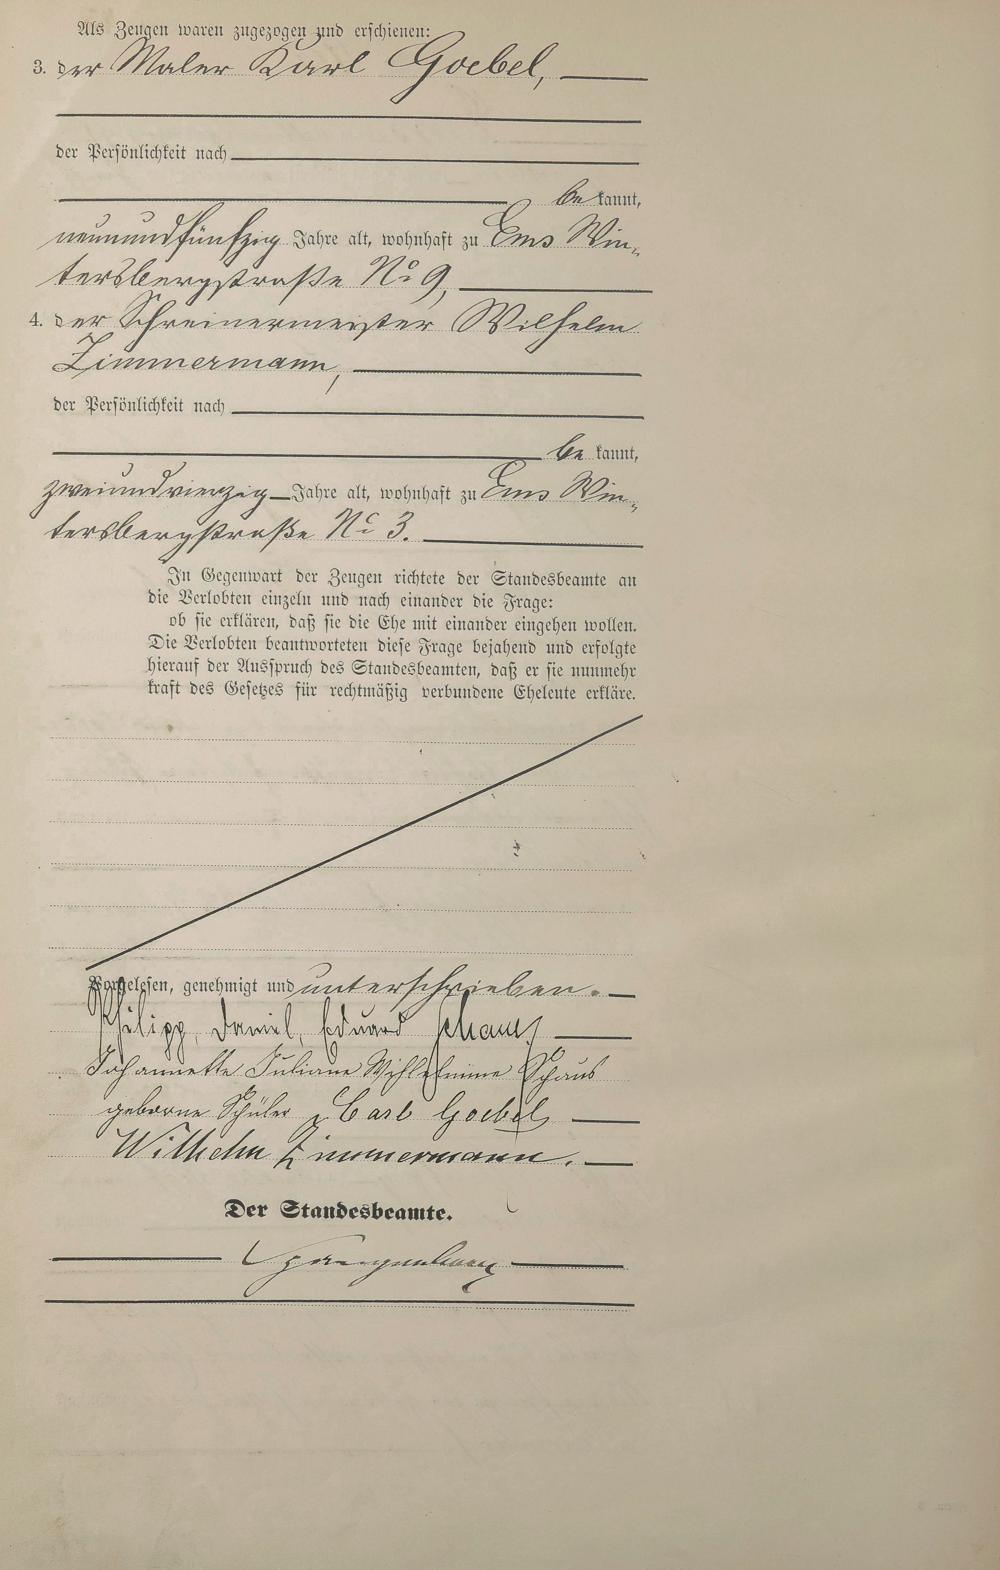 Als Zeugen waren zugezogen und erschienen:
3. der Maler Karl Goebel,
der Persönlichkeit nach
bekannt,
neunundfünfzig Jahre alt, wohnhaft zu Ems Win-
tersbergstraße No 9,
4. der Schreinermeister Wilhelm
Zimmermann,
der Persönlichkeit nach
be kannt,
zweiundvierzig Jahre alt, wohnhaft zu Ems Win-
tersbergstraße No 3.
In Gegenwart der Zeugen richtete der Standesbeamte an
die Verlobten einzeln und nach einander die Frage:
ob sie erklären, daß sie die Ehe mit einander eingehen wollen.
Die Verlobten beantworteten diese Frage bejahend und erfolgte
hierauf der Ausspruch des Standesbeamten, daß er sie nunmehr
kraft des Gesetzes für rechtmäßig verbundene Eheleute erkläre.
Vorgelesen, genehmigt und unterschrieben.
Philipp, Daniel, Eduard Schaus
Johannette Juliane Wilhelmine Schaus
geborne Schüler, Carl Goebel
Wilhelm Zimmermann.
Der Standesbeamte.